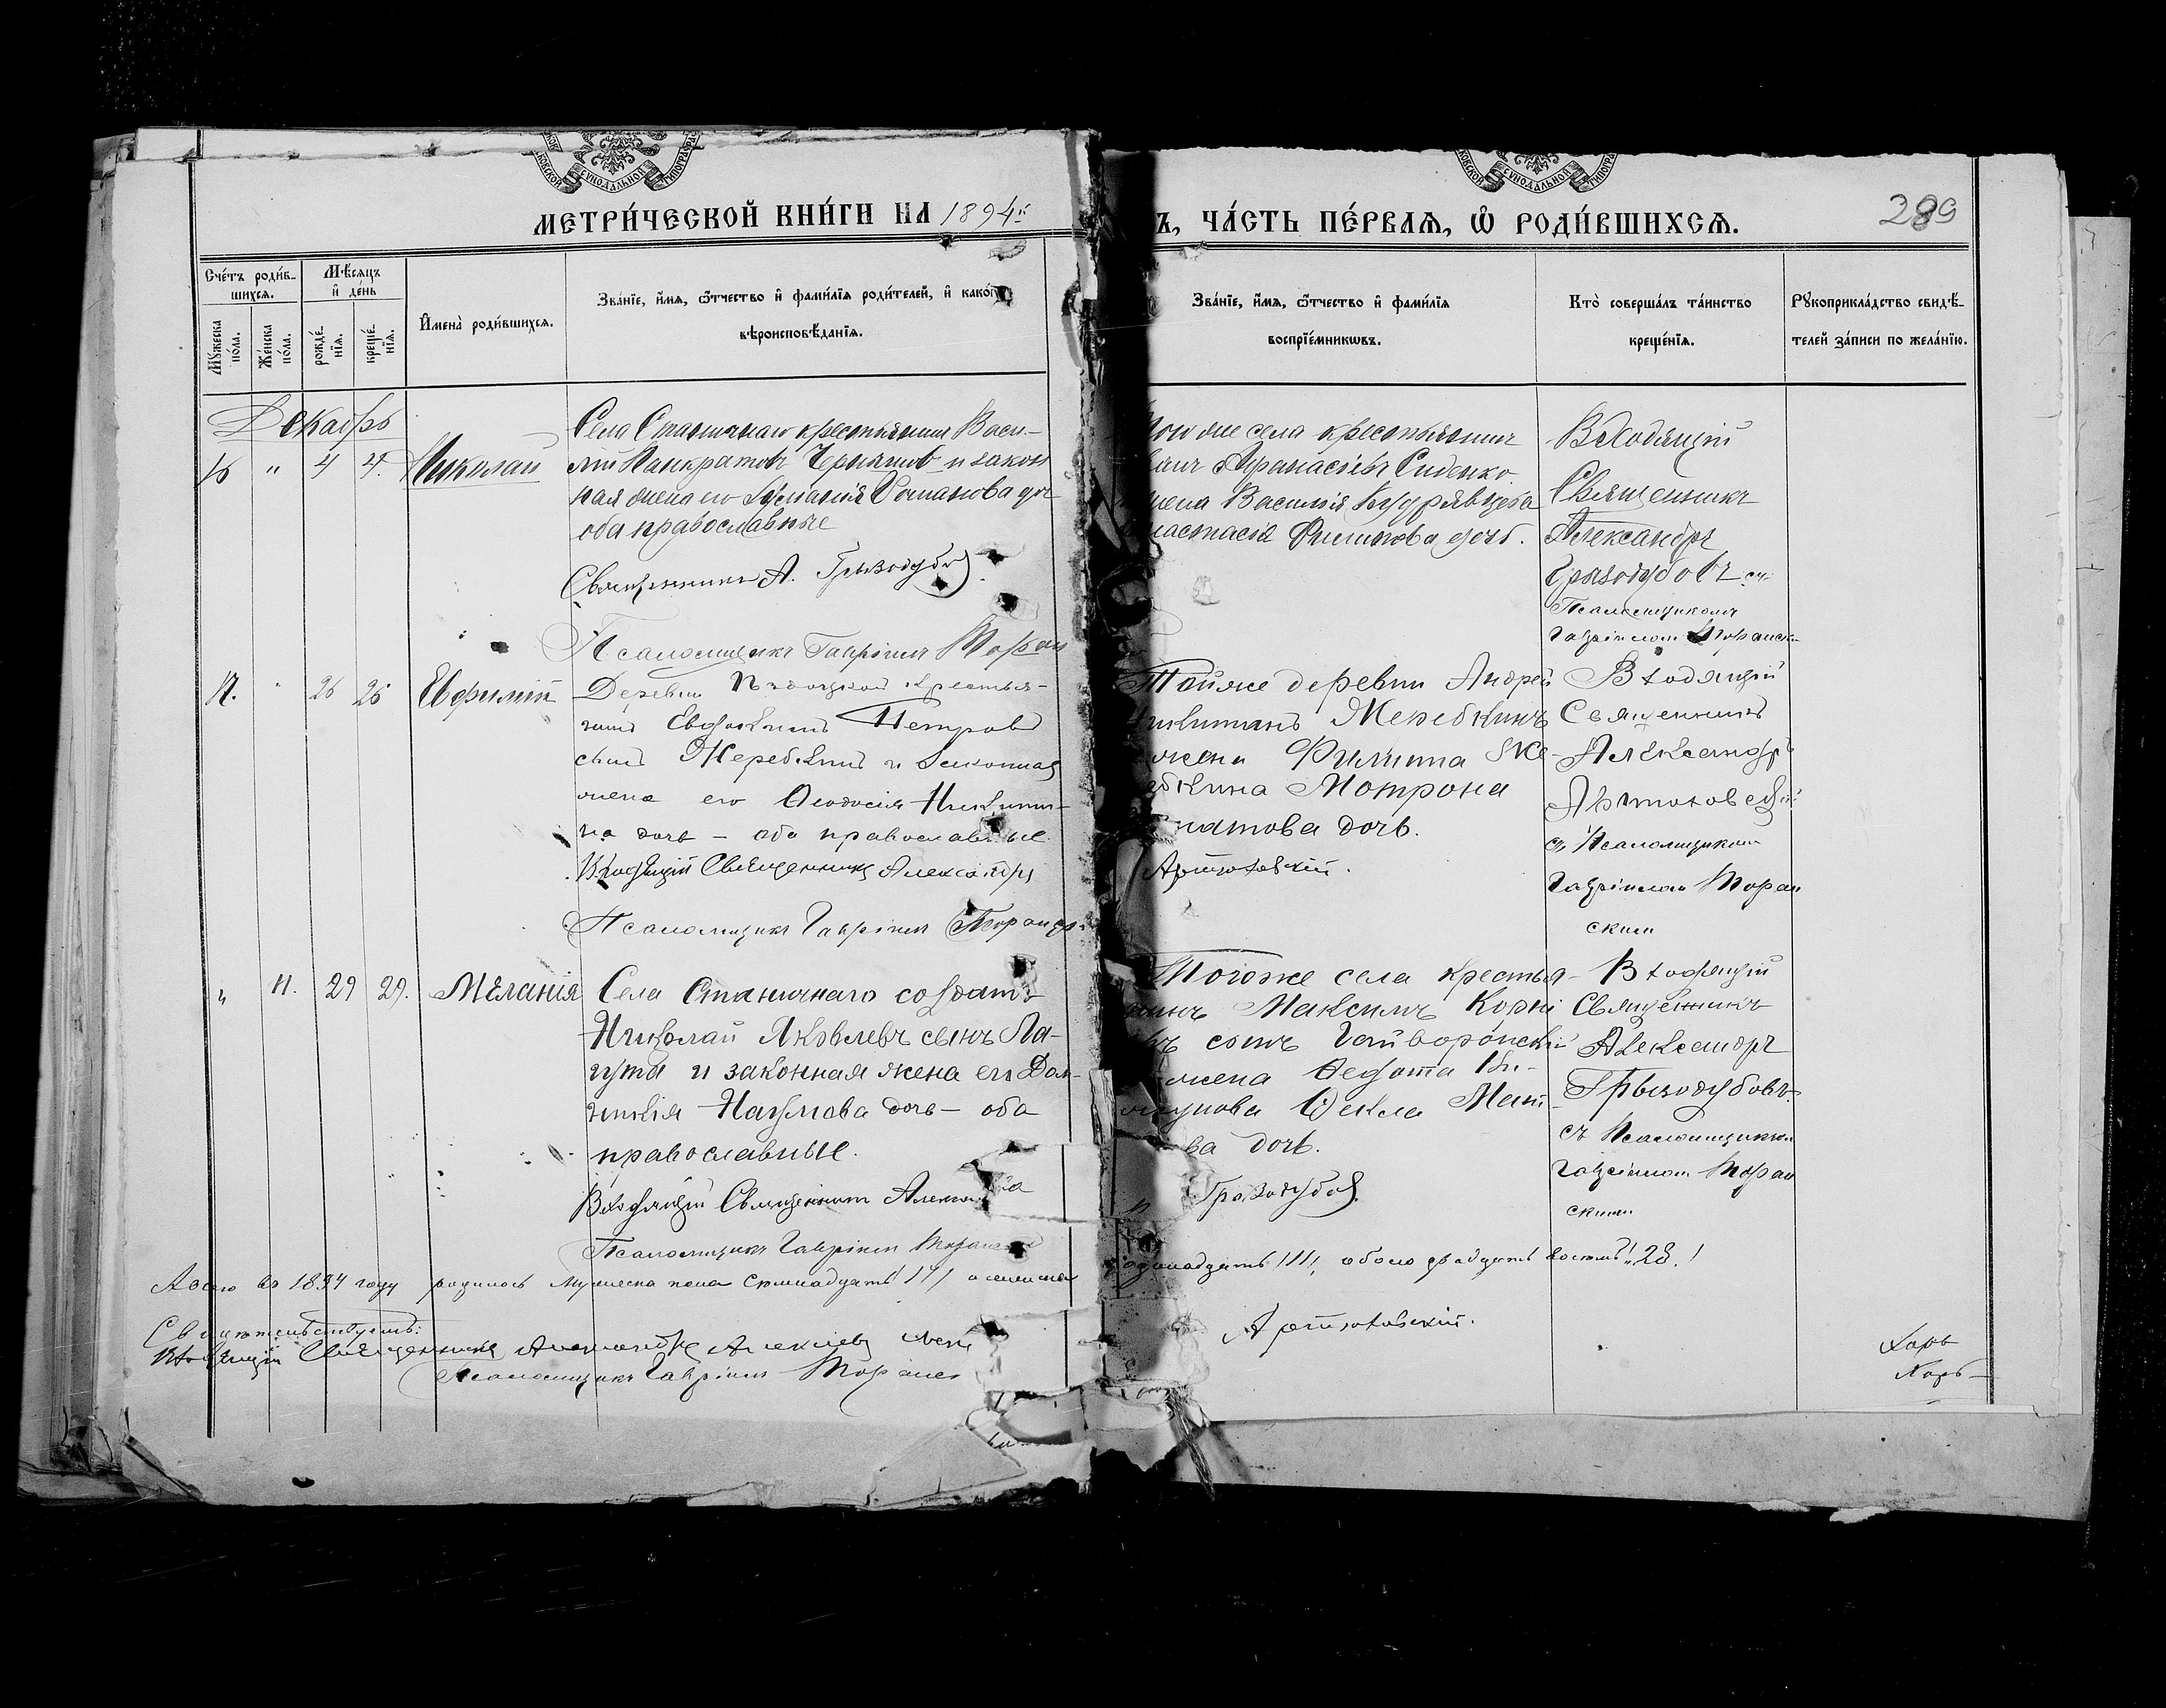 МЕТРИ́ЧЕСКОЙ КНИ́ГИ НА 1894й
Ъ, ЧА́СТЬ ПЕ́РВАѦ, Ѡ҆ РОДИ́ВШИХСѦ.
289
Сче́тъ роди́в-
шихсѧ.
Мѣ́сѧцъ
и҆ де́нь
Мꙋ́жеска
по́ла.
Же́нска
по́ла.
рожде́-
нїѧ.
креще́-
нїѧ.
И҆мена̀ роди́вшихсѧ.
Зва́нїе, и҆́мѧ, ѻ҆́тчество и҆ фами́лїѧ роди́телей, и҆ како́гѡ
вѣроисповѣ́данїѧ.
Зва́нїе, и҆́мѧ, ѻ҆́тчество и҆ фами́лїѧ
воспрїе́мникѡвъ.
Кто̀ соверша́лъ та́инство
креще́нїѧ.
Рꙋкоприкла́дство свидѣ́-
телей за́писи по жела́нїю.
Декабрь
16 " 4 4. Николай
Села Станичнаго крестьянинъ Васи-
лій Панкратовъ и закон
ная жена его Романова доч
оба православные
Священникъ А. Грызодубов
Псаломщикъ Гавріилъ Торан
же села крестьянинъ
Афанасіевъ Сиденко
жена Василія Кудрявцева
настасія Филипова дочь.
Входящій
Священникъ
Александръ
Грызодубовъ съ
Псаломщикомъ
Гавріиломъ Торанск
17. " 26 26 Евфимій
Деревни крестья-
нинъ Евдокимъ Петровъ
сынъ Жеребкинъ и законная
жена его Ѳеодосія Никити-
на дочь – оба православные.
Входящій Священникъ Александръ
Псаломщикъ Гавріилъ Торанск
Тойже деревни Андрей
Жеребкинъ
жена Филиппа Же-
ебкина Мотрона
натова дочь.
Артюховскій.
Входящій
Священникъ
Александръ
Артюховскій
съ Псаломщикомъ
Гавріиломъ Торан
скимъ
" 11. 29 29. Меланія
Села Станичнаго солдатъ
Николай Яковлевъ сынъ Ла-
гута и законная жена его Дом-
никія Наумова дочь – оба
православные.
Входящій Священникъ Алекса
Псаломщикъ Гавріилъ Торанск
Тогоже села крестья-
нинъ Максимъ Корні
въ сынъ Гайворонскій
жена Ѳедота
Ѳекла Мат
ва дочь.
Грызодубов
Входящій
Священникъ
Александръ
Грызодубовъ
съ Псаломщикомъ
Гавріиломъ Торан
скимъ
А всего въ 1894 году родилось мужеска пола семнадцать /17/ а женска
одинадцать /11/, обоего двадцать восемь /28/
Свидѣтельствуемъ:
Входящій Священникъ Александръ Алексіевъ
Артюховскій.
Псаломщикъ Гавріилъ Торанск
Харь
Харь-